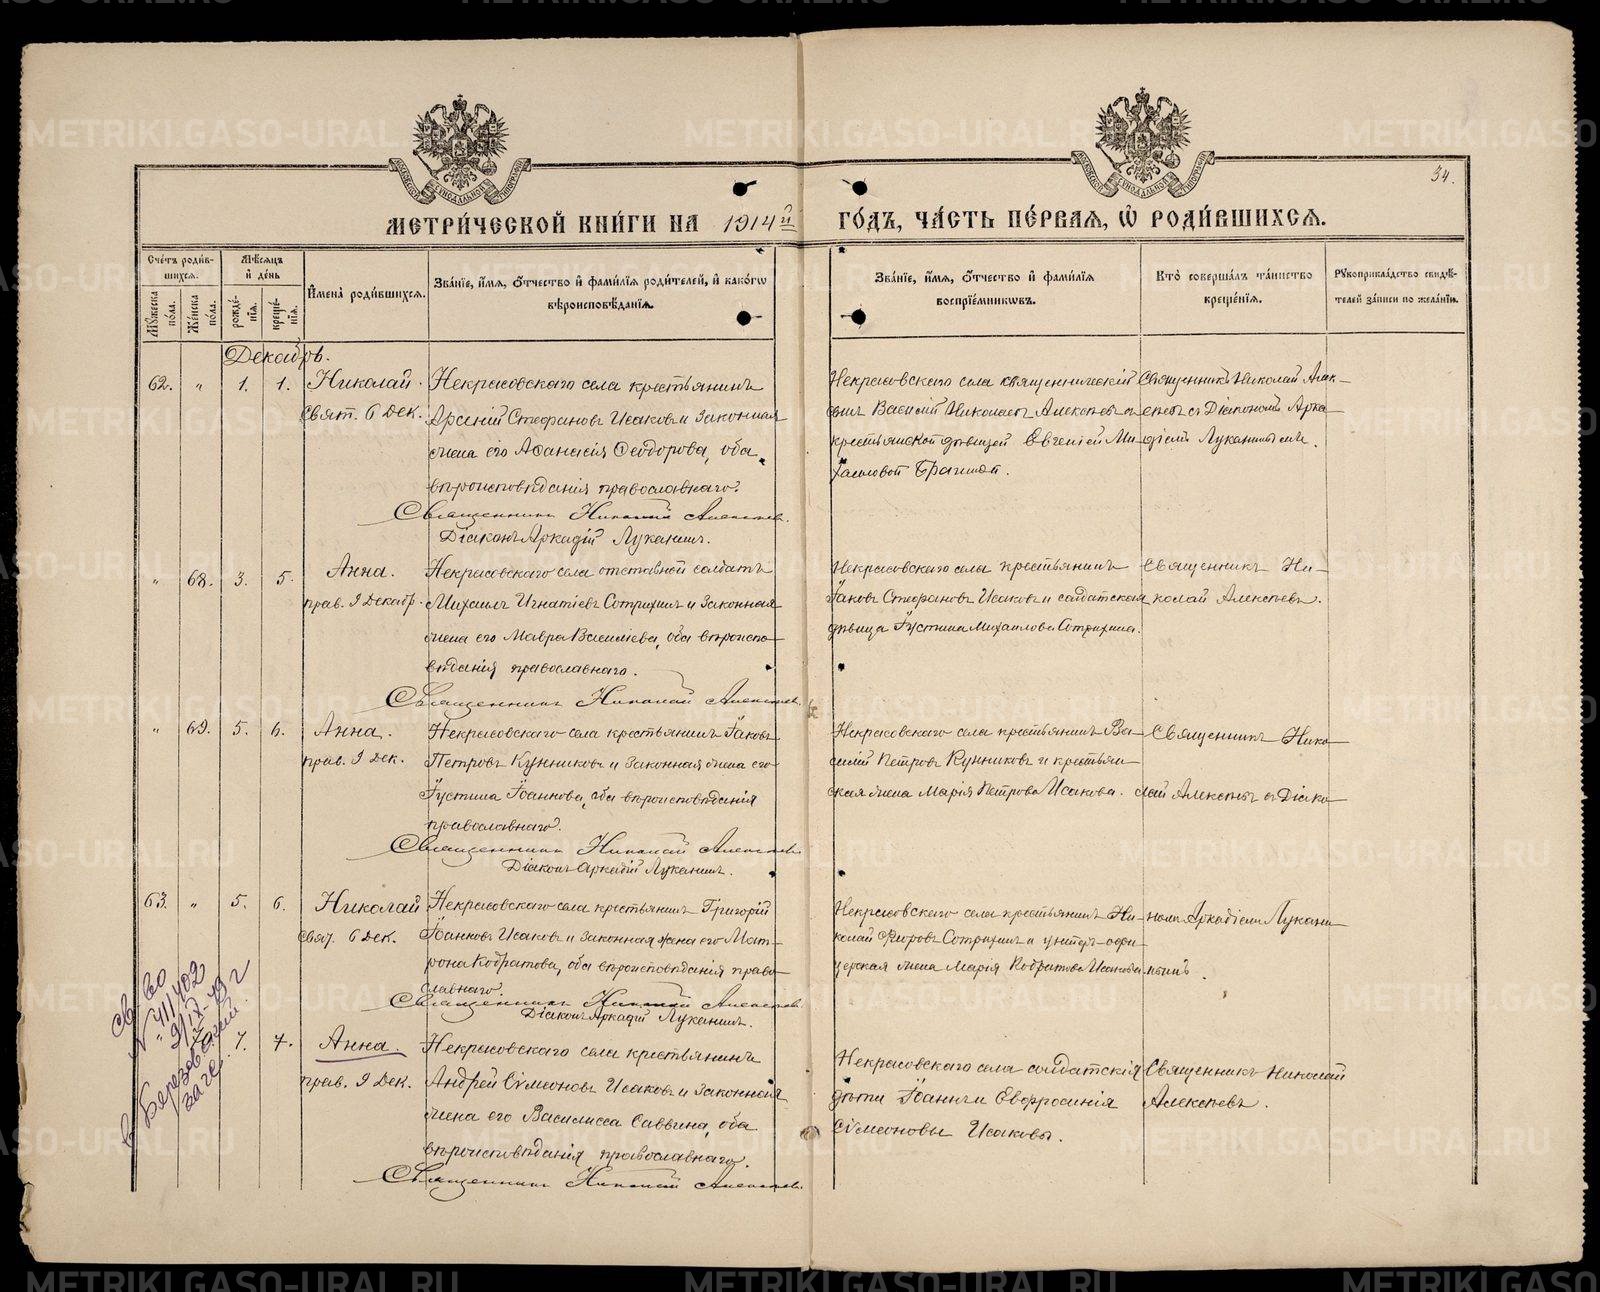 34.
МЕТРИЧЕСКОЙ КНИГИ НА 1914й
ГОДЪ, ЧАСТЬ ПЕРВАЯ, Ѡ РОДИВШИХСЯ.
Счетъ родившихся.
Мужеска пола.
Женска пола.
Мѣсяцъ и день
рожденія.
крещенія.
Имена родившихся.
Званіе, имя, отчество и фамилія родителей, и какогѡ вѣроисповѣданія.
Званіе, имя, отчество и фамилія воспріемникѡвъ.
Кто совершалъ таинство крещенія.
Рукоприкладство свидѣтелей записи по желанію.
Декабрь.
62. " 1. 1. Николай.
Свят. 6 Дек.
Некрасовскаго села крестьянинъ
Арсеній Стефановъ Исаковъ и законная
жена его Афанасія Ѳеодорова, оба
вѣроисповѣданія православнаго.
Священникъ Николай Алексѣевъ.
Діаконъ Аркадій Луканинъ.
Некрасовскаго села священническій
сынъ Василій Николаевъ Алексѣевъ и
крестьянской дѣвицей Евгеніей Ми-
хаиловой
Священникъ Николай Алек-
сѣевъ съ Діакономъ Арка-
діемъ Луканинымъ.
" 68. 3. 5. Анна.
прав. 9 Декабр.
Некрасовскаго села отставной солдатъ
Михаилъ Игнатіевъ Сотрихинъ и законная
жена его Мавра Василіева, оба вѣроиспо-
вѣданія православнаго.
Священникъ Николай Алексѣевъ.
Некрасовскаго села крестьянинъ
Іаковъ Стефановъ Исаковъ и солдатская
дѣвица Іустина Михаилова Сотрихина.
Священникъ Ни-
колай Алексѣевъ.
" 69. 5. 6. Анна.
прав. 9 Дек.
Некрасовскаго села крестьянинъ Іаковъ
Петровъ Кунниковъ и законная жена его
Іустина Іоаннова, оба вѣроисповѣданія
православнаго.
Священникъ Николай Алексѣевъ.
Діаконъ Аркадій Луканинъ.
Некрасовскаго села крестьянинъ Ва-
силій Петровъ Кунниковъ и крестьян-
ская жена Марія Петрова Исакова.
Священникъ Нико-
лай Алексѣевъ съ Діако-
63. " 5. 6. Николай
Свят. 6 Дек.
Некрасовскаго села крестьянинъ Григорій
Іоанновъ Исаковъ и законная жена его Мат-
рона Кодратова, оба вѣроисповѣданія право-
славнаго.
Священникъ Николай Алексѣевъ.
Діаконъ Аркадій Луканинъ.
Некрасовскаго села крестьянинъ Ни-
колай Ѳеоровъ Сотрихинъ и унтеръ-офи-
церская жена Марія Кодратова Исакова.
номъ Аркадіемъ Лукани-
нымъ.
70. 7. 7. Анна.
прав. 9 Дек.
Некрасовскаго села крестьянинъ
Андрей Сѵмеоновъ Исаковъ и законная
жена его Василисса Саввина, оба
вѣроисповѣданія православнаго.
Священникъ Николай Алексѣевъ.
Некрасовскаго села солдатскія
дѣти Іоаннъ и Евфросинія
Сѵмеоновы Исаковы.
Священникъ Николай
Алексѣевъ.
Св-во
№ 411402
Березовский
загс